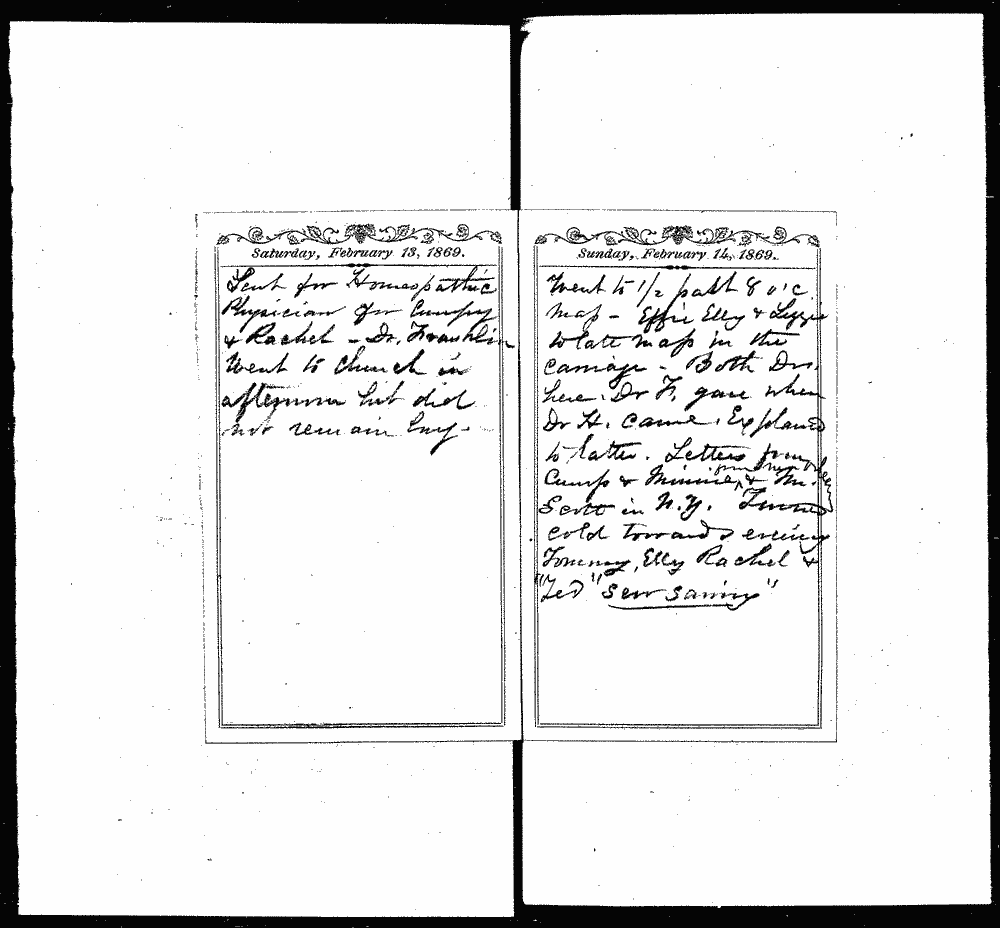 Saturday, February 13, 1869.
Sent for Homeopathic
Physician for Cumpy
& Rachel - Dr. Franklin
Went to Church in
afternoon but did
not remain long.
Sunday, February 14, 1869.
Went to 1/2 past 8 o'c.
Mass - Effie Elly & Lizzie
to late mass in the
carriage - Both Drs.
here. Dr F. gave when
Dr H. came. Explained
to latter. Letters from
Cump & Minnie, & Mr.
Scott in N.Y. Turned
cold towards evening
Tommy, Elly Rachel &
"Ted" "sew saming"